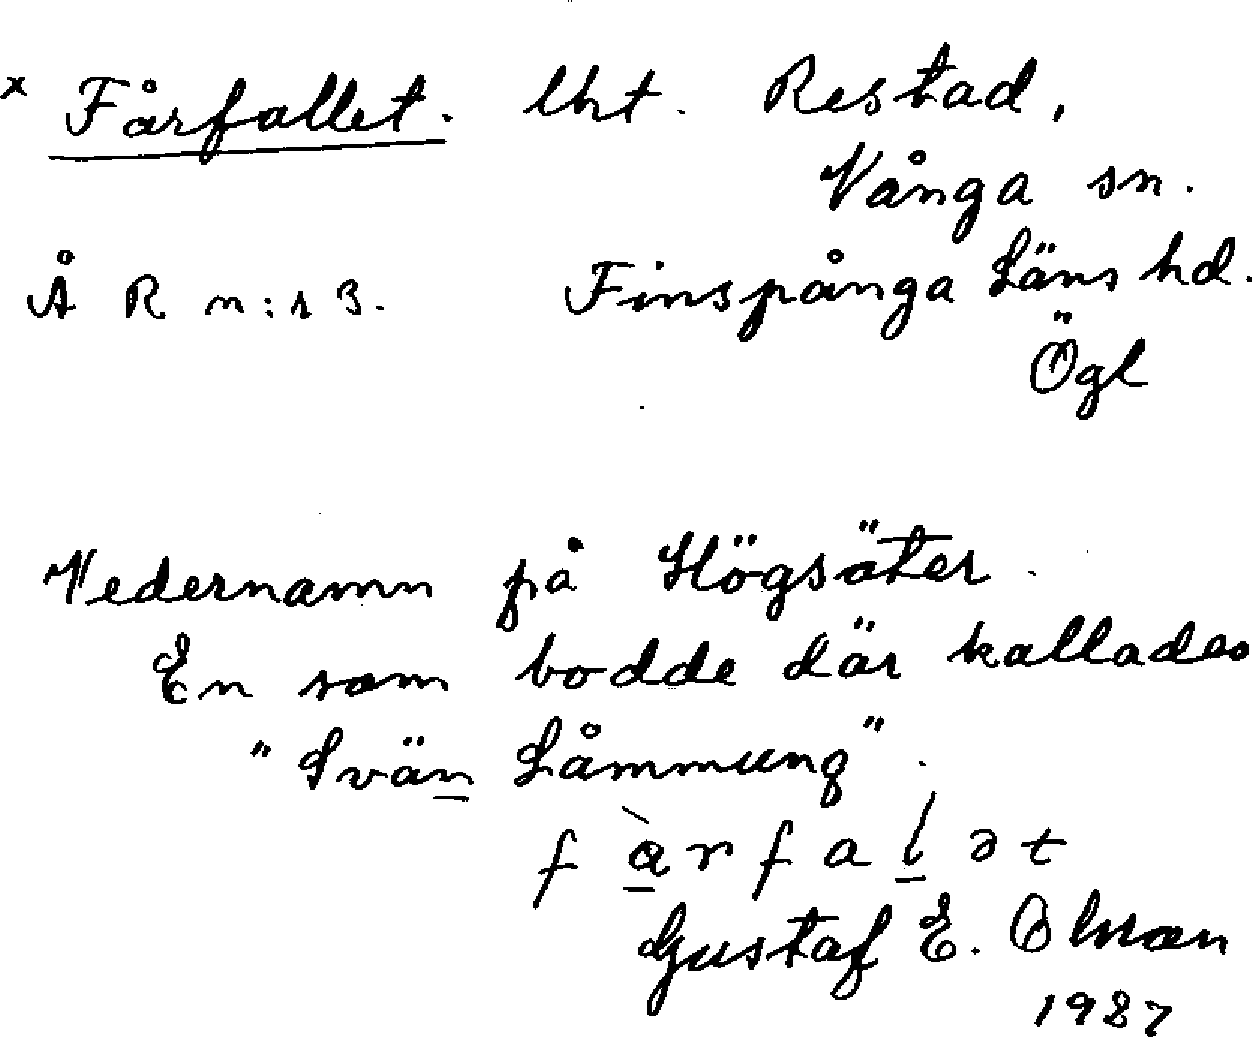 x Fårfallet. lht. Restad,
Vånga sn.
Å R n:s 3. Finspånga Läns hd.
Ögl
Vedernamn på Högsäter.
En som bodde där kallades
"Svän Låmmunq".
f à r f a l ə t
Gustaf E. Olman
1927